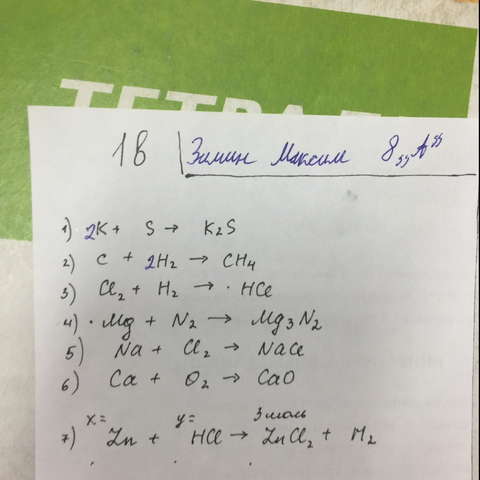 ТЕТРА
1В Зимин Максим 8 „А"
1) 2K + S → K₂S
2) C + 2H₂ → CH₄
3) Cl₂ + H₂ → · HCl
4) · Mg + N₂ → Mg₃N₂
5) Na + Cl₂ → NaCl
6) Ca + O₂ → CaO
x= y= 3 моль
7) Zn + HCl → ZnCl₂ + H₂